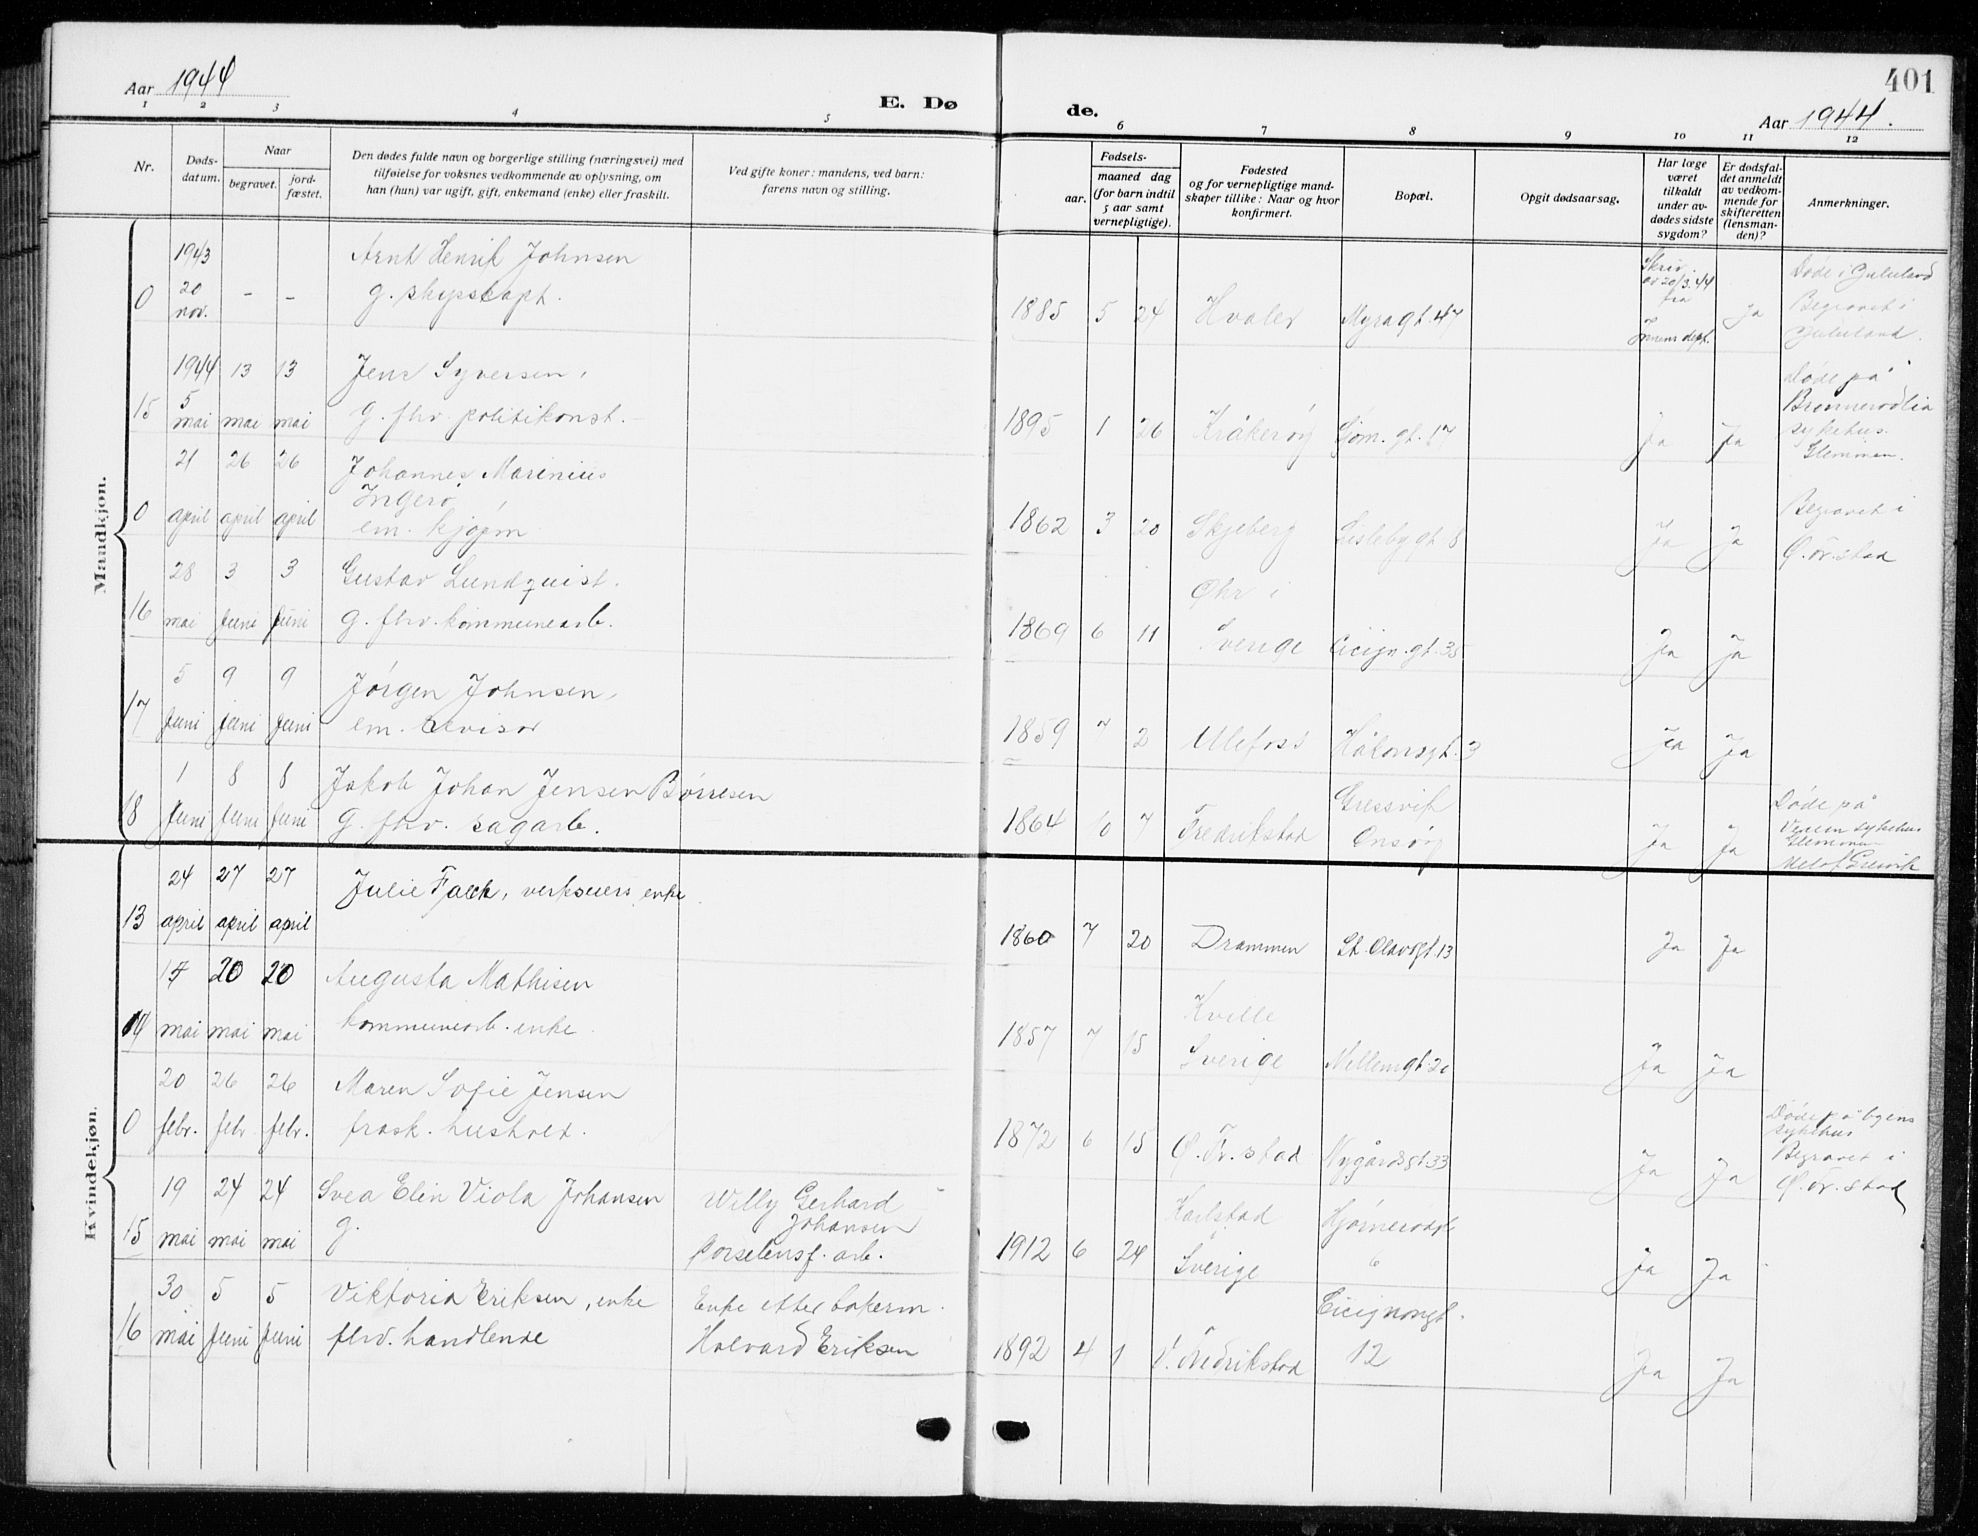 401
Aar 1944
E. Dø
de.
Aar 1944.
1 2 3 4 5 6 7 8 9 10 11 12
Nr.
Døds-
datum.
Naar
begravet.
jord-
fæstet.
Den dødes fulde navn og borgerlige stilling (næringsvei) med
tilføielse for voksnes vedkommende av oplysning, om
han (hun) var ugift, gift, enkemand (enke) eller fraskilt.
Ved gifte koner: mandens, ved barn:
farens navn og stilling.
Fødsels-
aar.
maaned dag
(for barn indtil
5 aar samt
vernepligtige).
Fødested
og for vernepligtige mand-
skaper tillike: Naar og hvor
konfirmert.
Bopæl.
Opgit dødsaarsag.
Har læge
været
tilkaldt
under av-
dødes sidste
sygdom?
Er dødsfal-
det anmeldt
av vedkom-
mende for
skifteretten
(lensman-
den)?
Anmerkninger.
Mandkjøn.
1943
0 20 nov. - -
Arnt Henrik Johnsen
g. skipskapt.
1885 5 24 Hvaler Myragt. 47
Skriv.
av 20/3.44
fra
Innens dept.
Ja
Døde i
Begravet i
1944 13 13
15 5 mai mai mai
Jens Syversen,
g. fhv. politikonst.
1895 1 26 Kråkerøy Gom. gt. 17 Ja Ja
Døde på
sykehus.
Glemmen.
21 26 26
0 april april april
Johannes Marinius
Ingerø
em. kjøpm
1862 3 20 Skjeberg Gislebygt. 8 Ja Ja
Begravet i
Ø. Fr.stad
28 3 3
16 mai juni juni
Gustav Lundquist.
g. fhv. kommunearb.
1869 6 11
Sverige Cicign. gt. 35 Ja Ja
5 9 9
17 juni juni juni
Jørgen Johnsen,
em. revisor
1859 7 2 Ulefoss Håkonsgt. 3 Ja Ja
1 8 8
18 juni juni juni
Jakob Johan Jensen Børresen
g. fhv. sagarb.
1864 10 7 Fredrikstad
Gressvik
Onsøy
Ja Ja
Døde på
sykehus
Glemmen
Kvindekjøn.
24 27 27
13 april april april
Julie Falck, verkseiers enke
1860 7 20 Drammen St. Olavsgt. 13 Ja Ja
20 20
14 mai mai mai
Augusta Mathisen
kommunearb. enke
1857 7 15
Kville
Sverige Mellemgt. 20 Ja Ja
20 26 26
0 febr. febr. febr.
Maren Sofie Jensen
frask. hushold.
1872 6 15 Ø. Fr. stad Nygårdsgt 33 Ja Ja
Døde på byens
sykehus
Begravet i
Ø. Fr. stad
19 24 24
15 mai mai mai
Svea Elin Viola Johansen
g.
Willy Gerhard
Johansen
Porselensf. arb.
1912 6 24
Karlstad
Sverige
6
Ja Ja
30 5 5
16 mai juni juni
Viktoria Eriksen, enke
fhv. handlende
Enke efter bakerm.
Halvard Eriksen
1892 4 1 V. Fredrikstad
Cicignongt.
12
Ja Ja